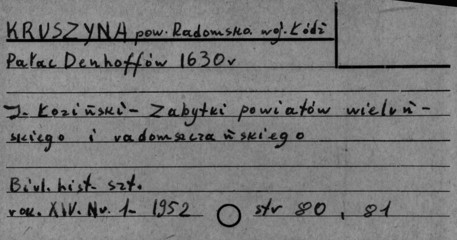 KRUSZYNA pow. Radomsko woj. Łódź
Pałac Denhoffów 1630r
J. Koziński - Zabytki powiatów wieluń-
skiego i radomszczańskiego
Biul. hist. szt.
rok. XIV. Nr. 1- 1952 str 80, 81